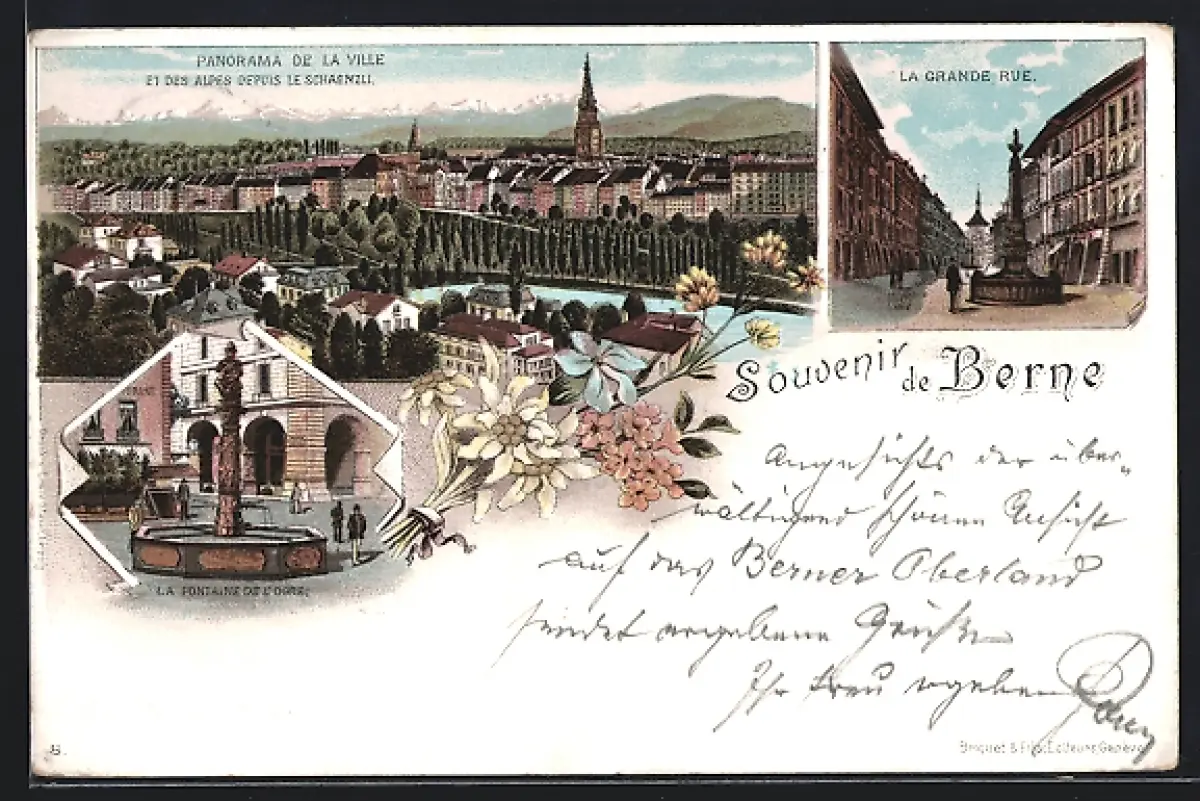 PANORAMA DE LA VILLE
ET DES ALPES DEPUIS LE SCHAENZLI.
LA GRANDE RUE.
Souvenir de Berne
LA FONTAINE DE L'OGRE.
Angesichts der über„
wältigend schönen Ansicht
auf das Berner Oberland
sendet ergebene Grüße
Ihr treu ergebener
Briquet & Fils, Editeurs Genève